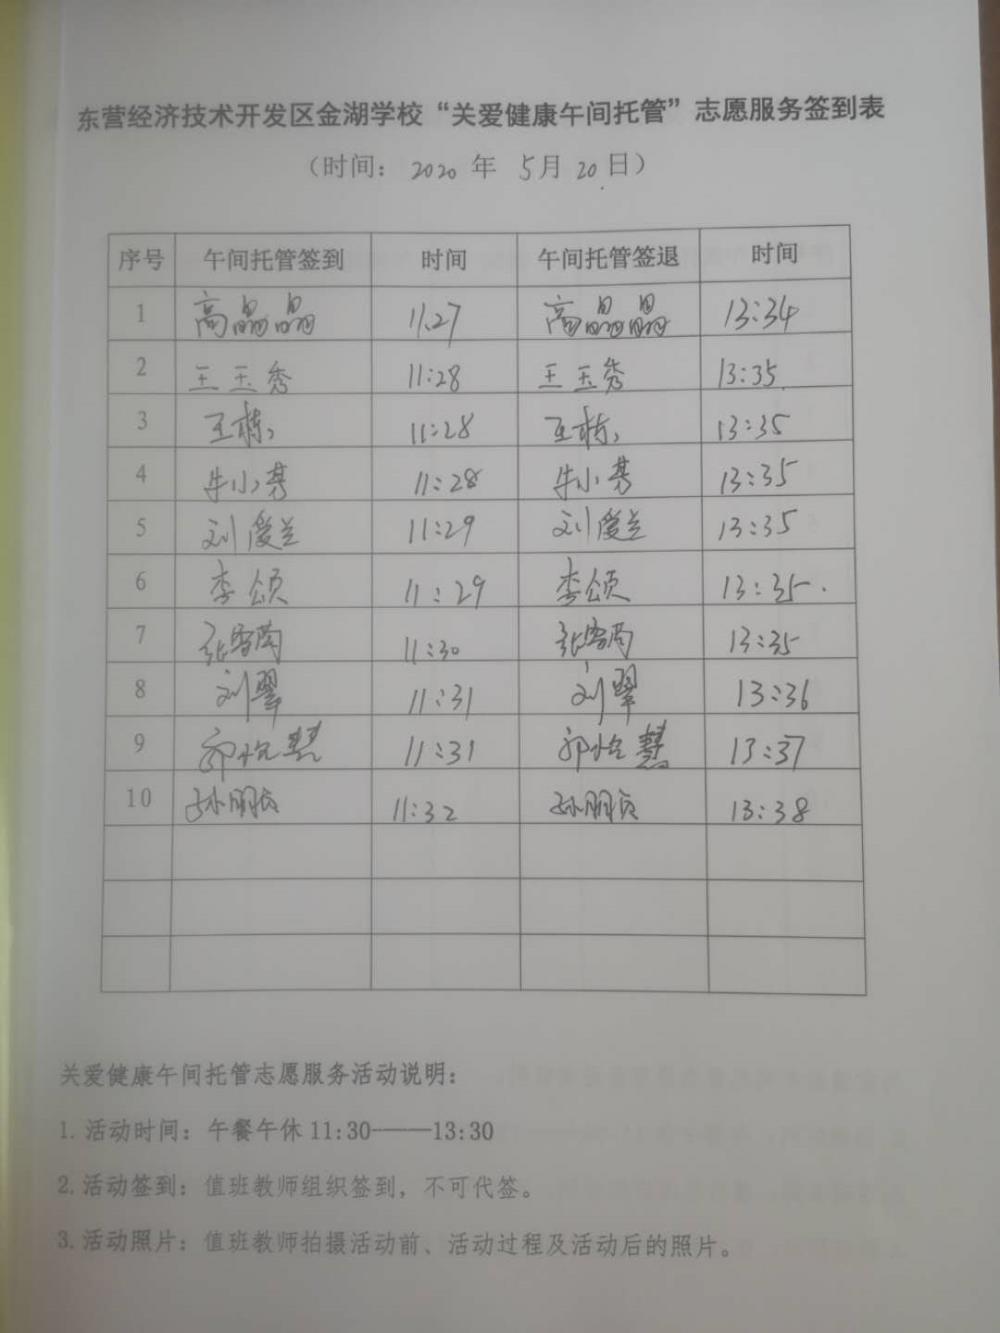 东营经济技术开发区金湖学校“关爱健康午间托管”志愿服务签到表
（时间：2020年 5月20日）
序号 午间托管签到 时间 午间托管签退 时间
1 高晶晶 11:27 高晶晶 13:34
2 王玉秀 11:28 王玉秀 13:35
3 王栋 11:28 王栋 13:35
4 牛小秀 11:28 牛小秀 13:35
5 刘爱兰 11:29 刘爱兰 13:35
6 李颂 11:29 李颂 13:35
7 11:30 13:35
8 刘翠 11:31 刘翠 13:36
9 郭怡慧 11:31 郭怡慧 13:37
10 孙朋贞 11:32 孙朋贞 13:38
关爱健康午间托管志愿服务活动说明：
1.活动时间：午餐午休11:30———13:30
2.活动签到：值班教师组织签到，不可代签。
3.活动照片：值班教师拍摄活动前、活动过程及活动后的照片。